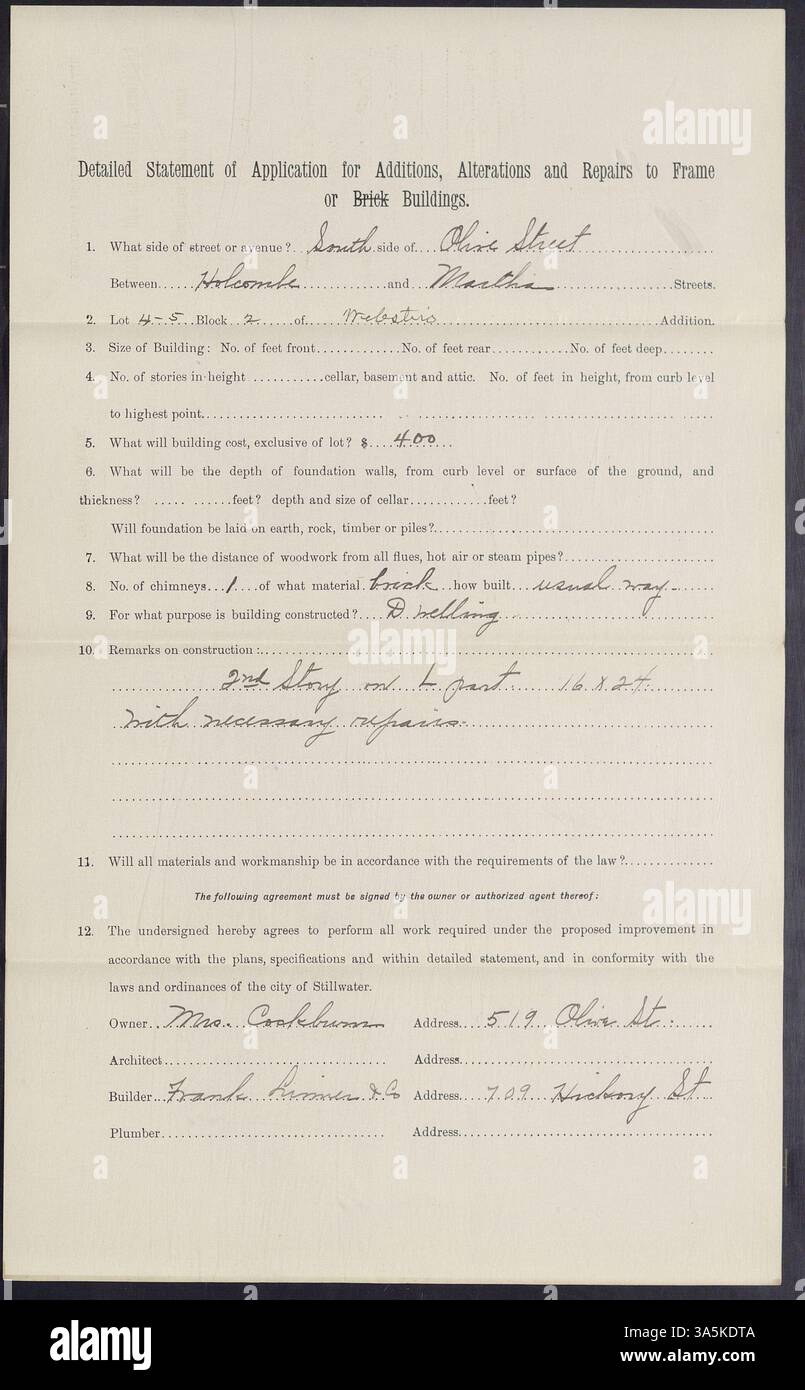 Detailed Statement of Application for Additions, Alterations and Repairs to Frame
or Brick Buildings.
1. What side of street or avenue? South side of Olive Street
Between Holcombe and Martha Streets.
2. Lot 4-5 Block 2 of Websters Addition.
3. Size of Building: No. of feet front No. of feet rear No. of feet deep
4. No. of stories in height cellar, basement and attic. No. of feet in height, from curb level
to highest point
5. What will building cost, exclusive of lot? $ 400
6. What will be the depth of foundation walls, from curb level or surface of the ground, and
thickness? feet? depth and size of cellar feet?
Will foundation be laid on earth, rock, timber or piles?
7. What will be the distance of woodwork from all flues, hot air or steam pipes?
8. No. of chimneys 1 of what material brick how built usual way
9. For what purpose is building constructed? Dwelling
10. Remarks on construction:
2nd Story on L part 16 x 24
with necessary repairs
11. Will all materials and workmanship be in accordance with the requirements of the law?
The following agreement must be signed by the owner or authorized agent thereof:
12. The undersigned hereby agrees to perform all work required under the proposed improvement in
accordance with the plans, specifications and within detailed statement, and in conformity with the
laws and ordinances of the city of Stillwater.
Owner Mrs. Cockburn Address 519 Olive St.
Architect Address
Builder Frank Linner & Co Address 709 Hickory St
Plumber Address
alamy
Image ID: 3A5KDTA
www.alamy.com